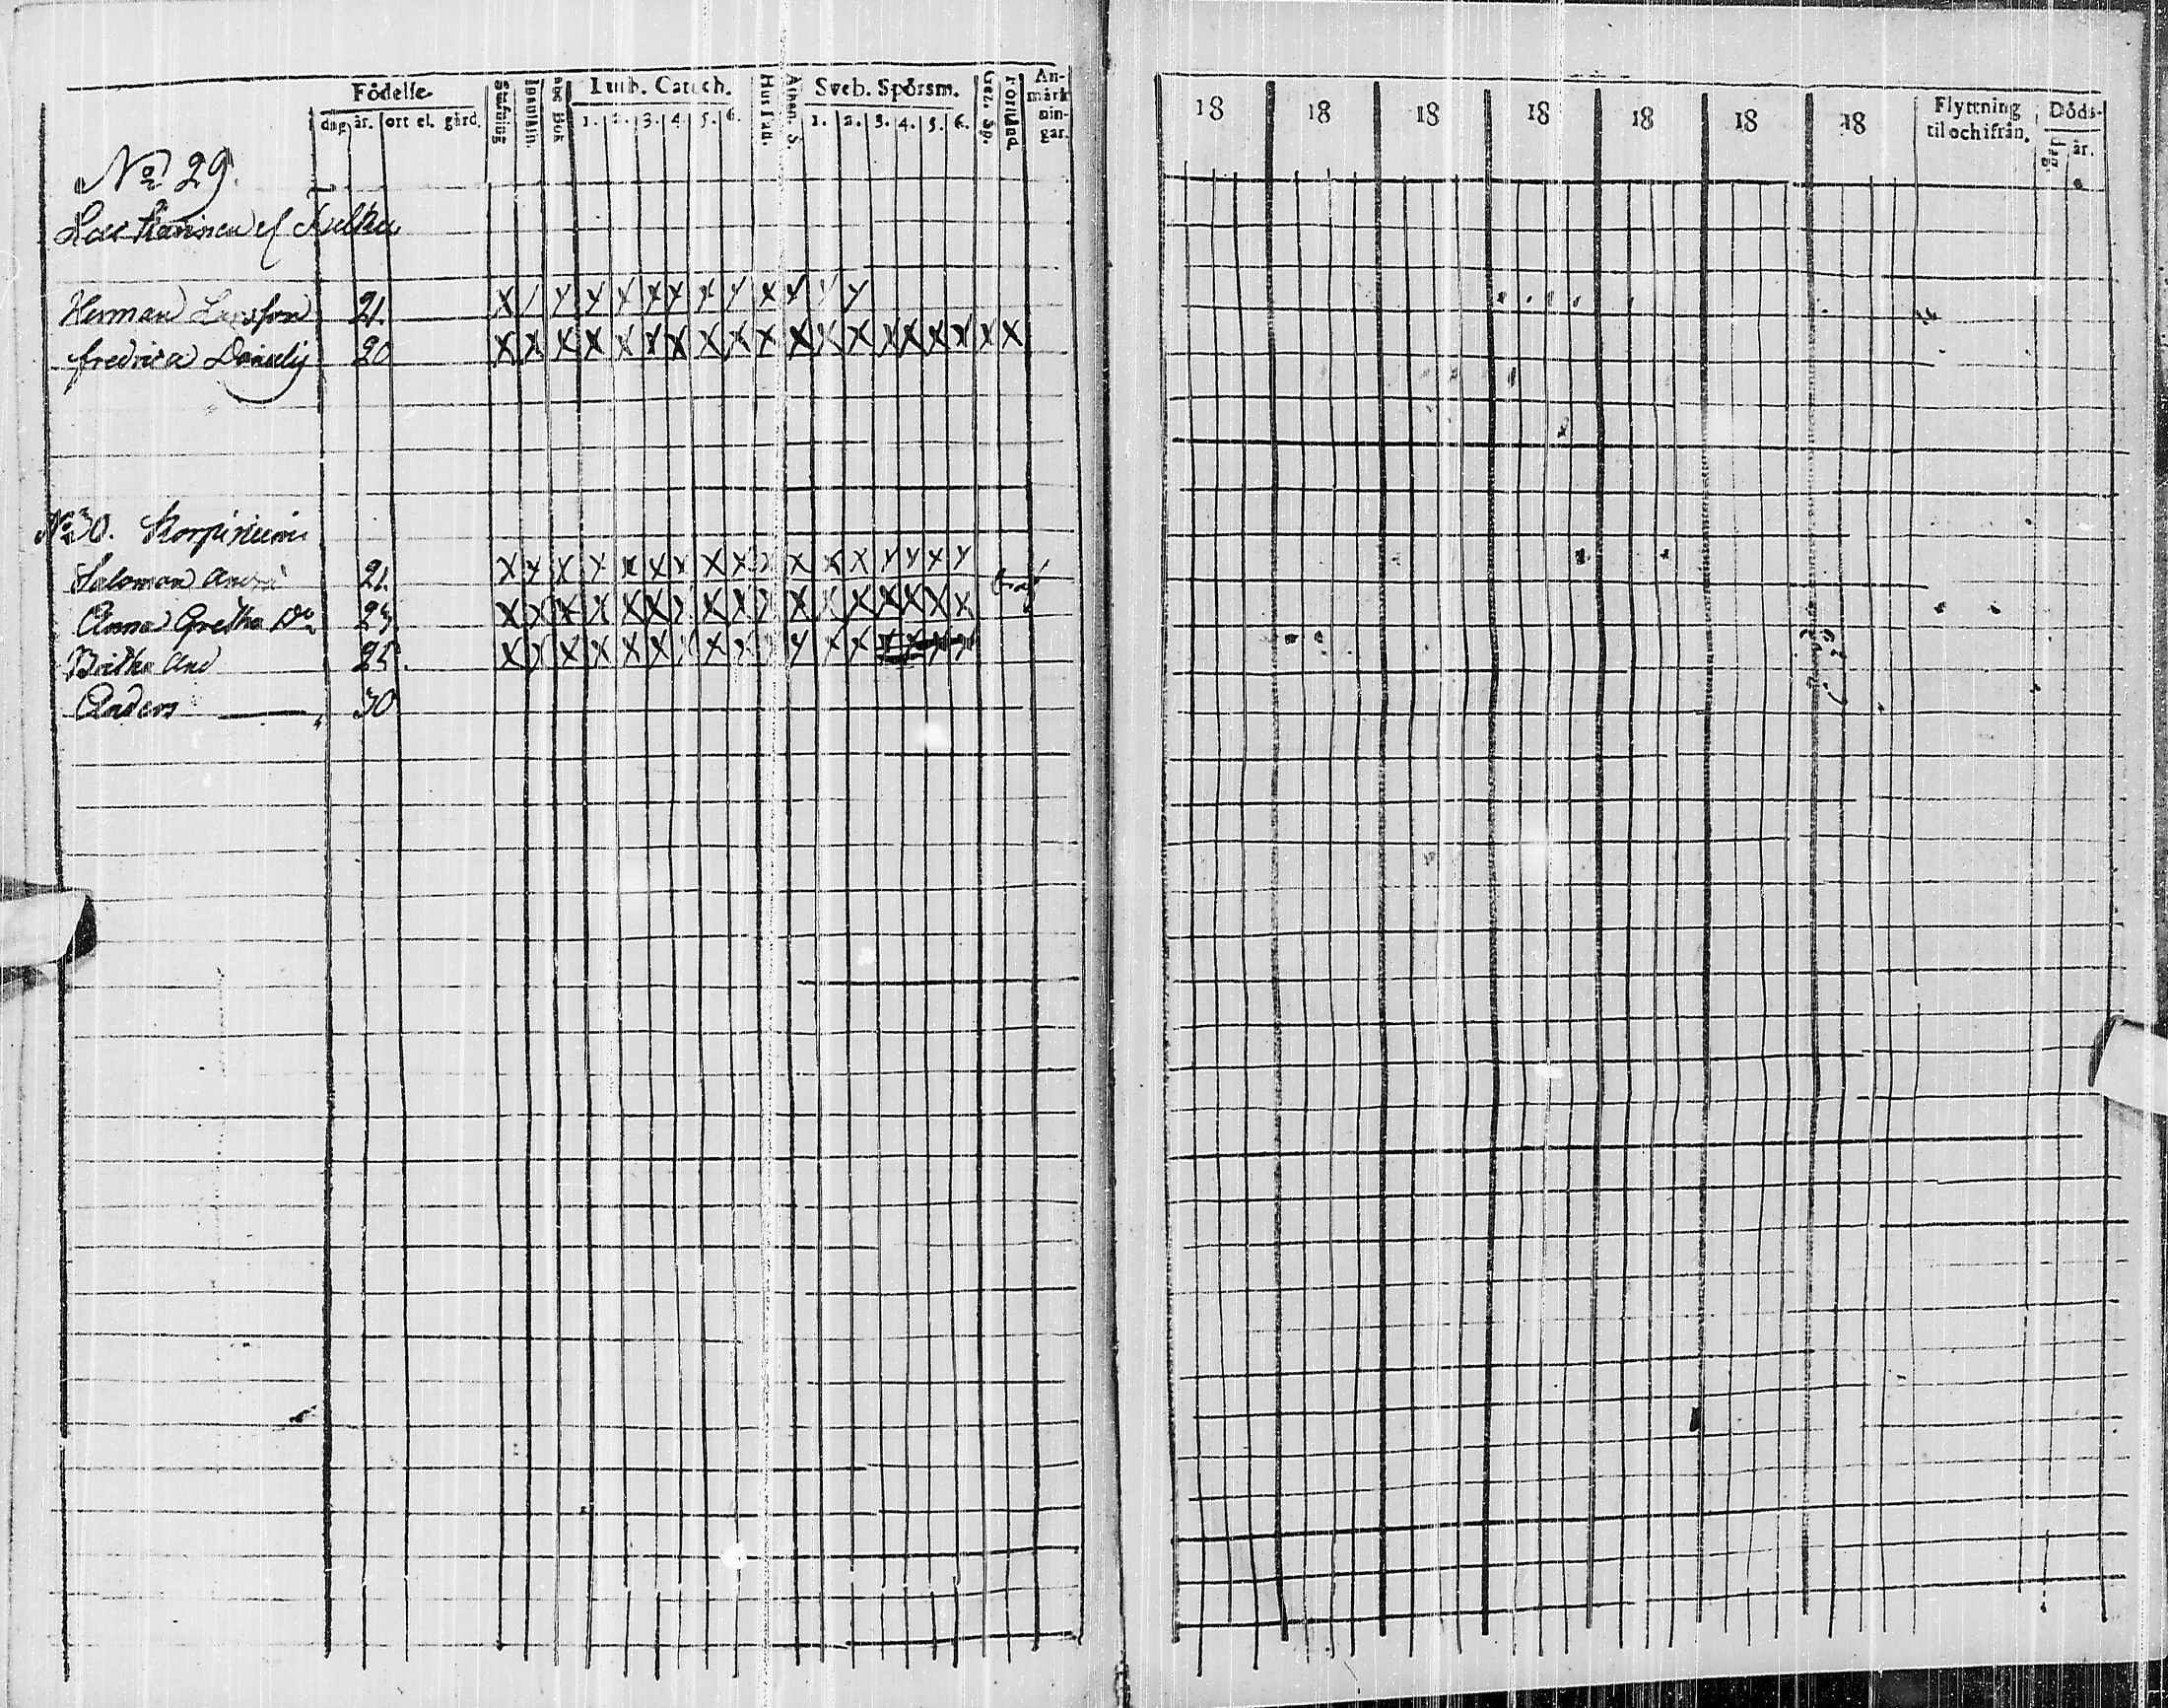 Födelse-
dag år. ort el. gård.
Stafning
ABC Bok
Luth. Catech.
1. 2. 3. 4. 5. 6.
Hus Tafl.
Athan. S.
Sveb. Spörsm.
1. 2. 3. 4. 5. 6.
Gez. Sp.
Förstånd
An-
märk
nin-
gar.
18 18 18 18 18 18 18
Flyttning
til och ifrån.
Döds-
dag år.
No 29.
Herman Larsson 21.
Fredrica 20
No 30.
Salomon 21.
Anna Gretha Do 23
Britha And 25.
Anders 30